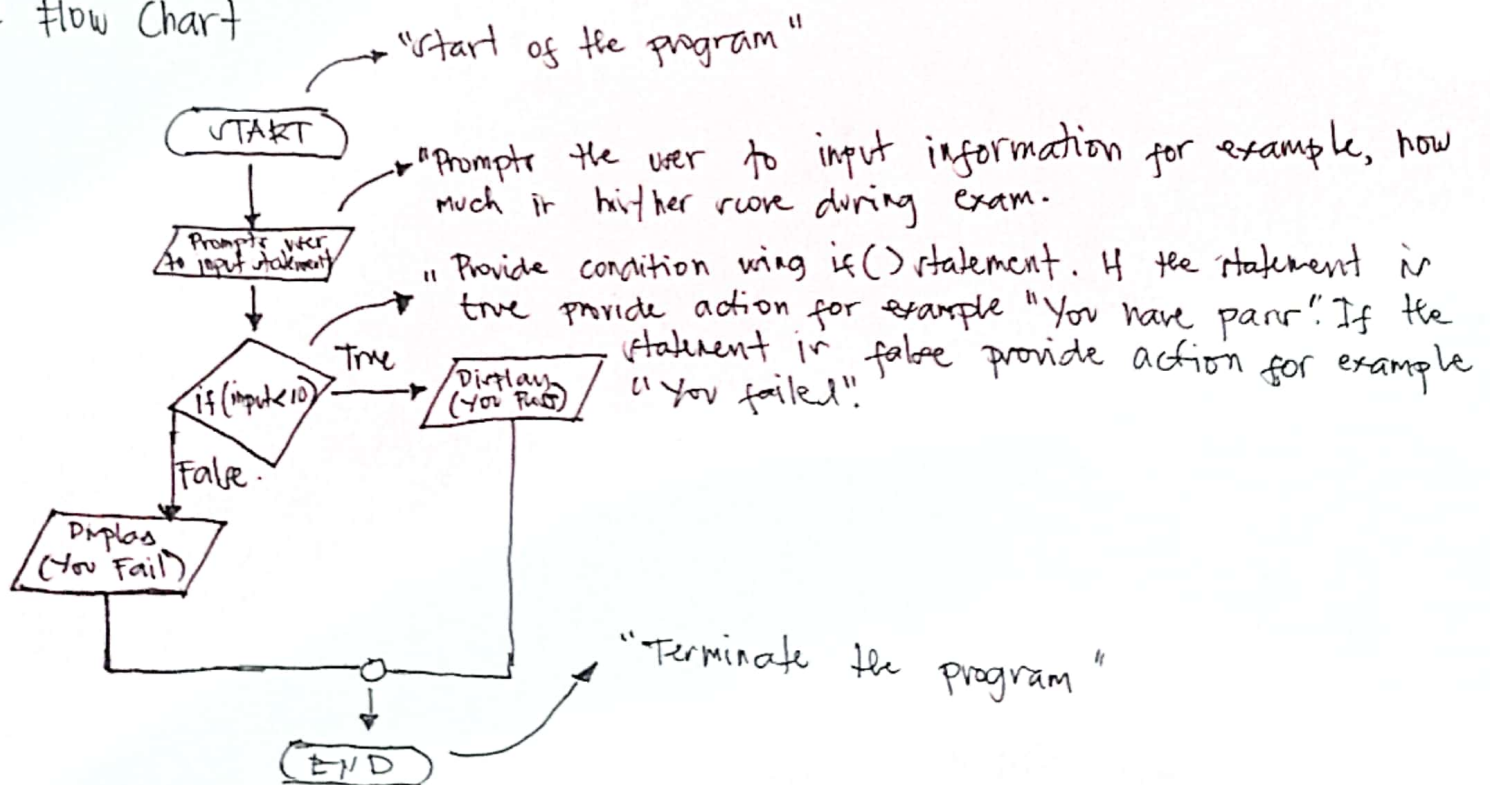 Flow Chart
"Start of the program"
START
"Prompts the user to input information for example, how
much is his/her score during exam.
Prompts user
to input statement
" Provide condition using if() statement. If the statement is
true provide action for example "You have pass". If the
statement is false provide action for example
"You failed".
if(input<10)
True
Display
(You Pass)
False.
Display
(You Fail)
"Terminate the program"
END